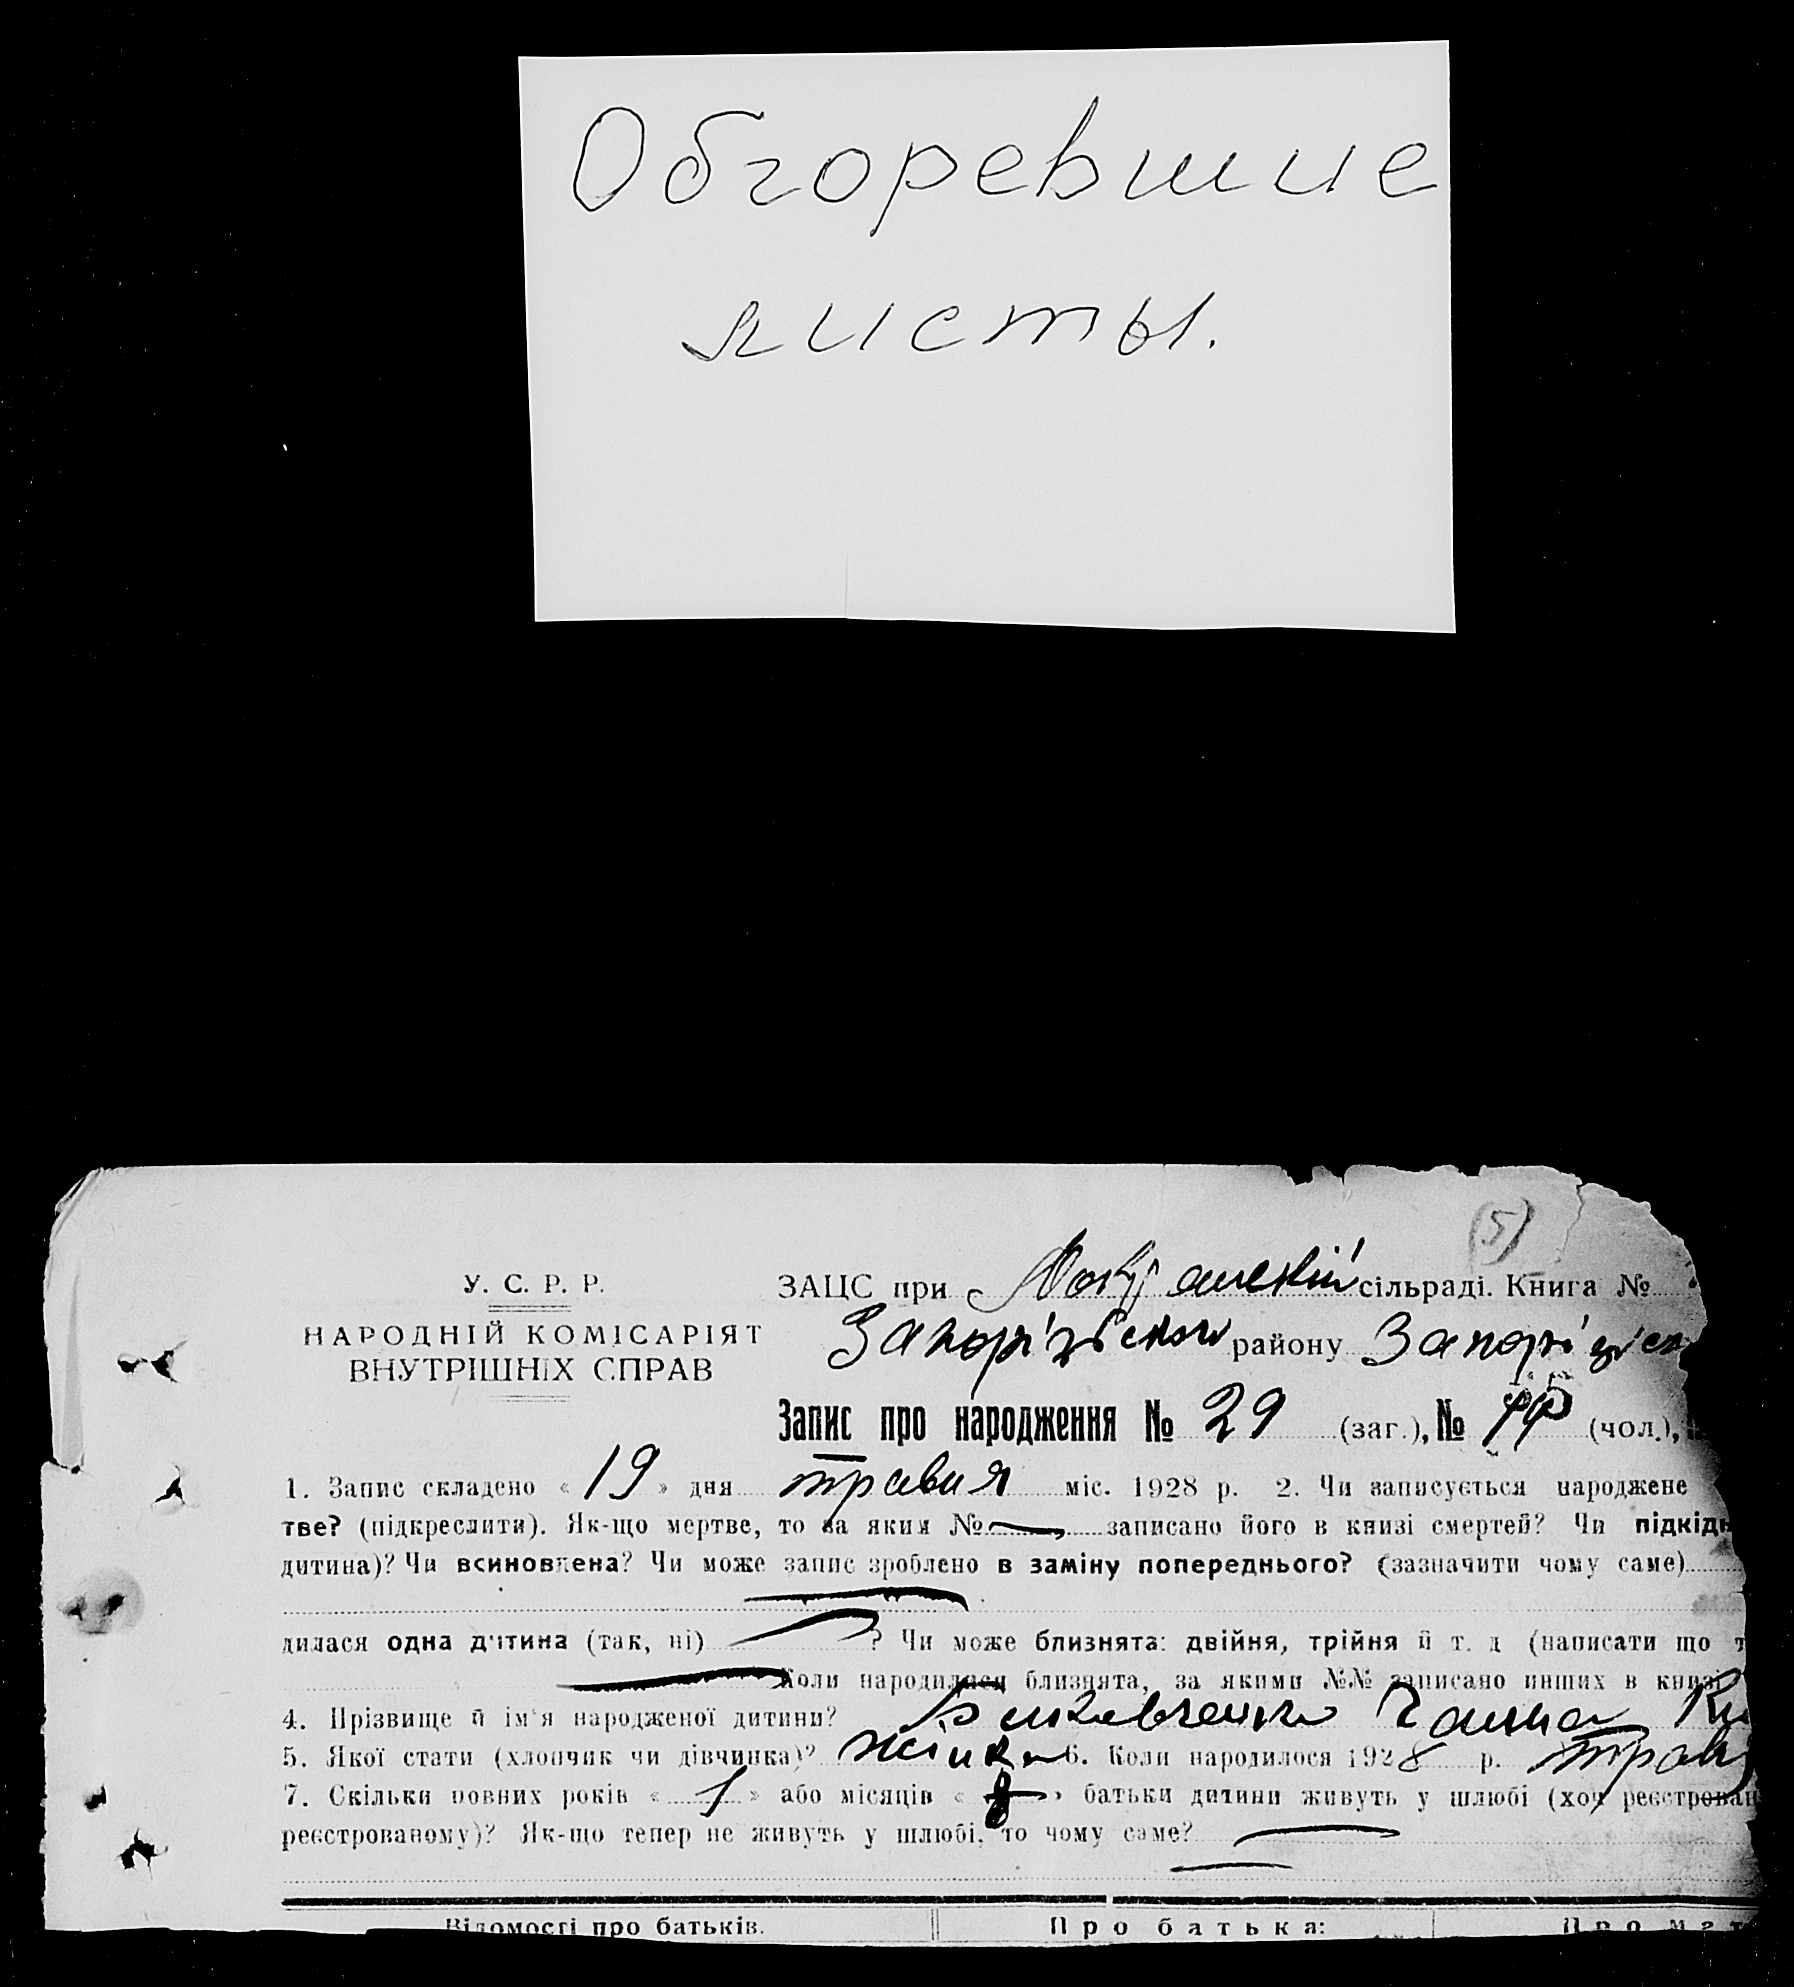 Обгоревшие
листы.
(5)
У. С. Р. Р.
НАРОДНІЙ КОМІСАРІЯТ
ВНУТРІШНІХ СПРАВ
ЗАЦС при сільраді. Книга №
Запорізького району Запорізьк
Запис про народження № 29 (заг.), № (чол.),
1. Запис складено « 19 » дня травня міс. 1928 р. 2. Чи записується народжене
тве? (підкреслити). Як-що мертве, то за яким № — записано його в книзі смертей? Чи підкідь
дитина)? Чи всиновлена? Чи може запис зроблено в заміну попереднього? (зазначити чому саме)
дилася одна дитина (так, ні) ? Чи може близнята: двійня, трійня й т. д (написати що т
Коли народилися близнята, за якими №№ записано инших в книзі
4. Прізвище й ім'я народженої дитини? Ганна
5. Якої стати (хлопчик чи дівчинка)? жінка 6. Коли народилося 1928 р. трав
7. Скільки повних років « 1 » або місяців « » батьки дитини живуть у шлюбі (хоч реєстрован
реєстрованому)? Як-що тепер не живуть у шлюбі, то чому саме?
Відомості про батьків. Про батька: Про мат